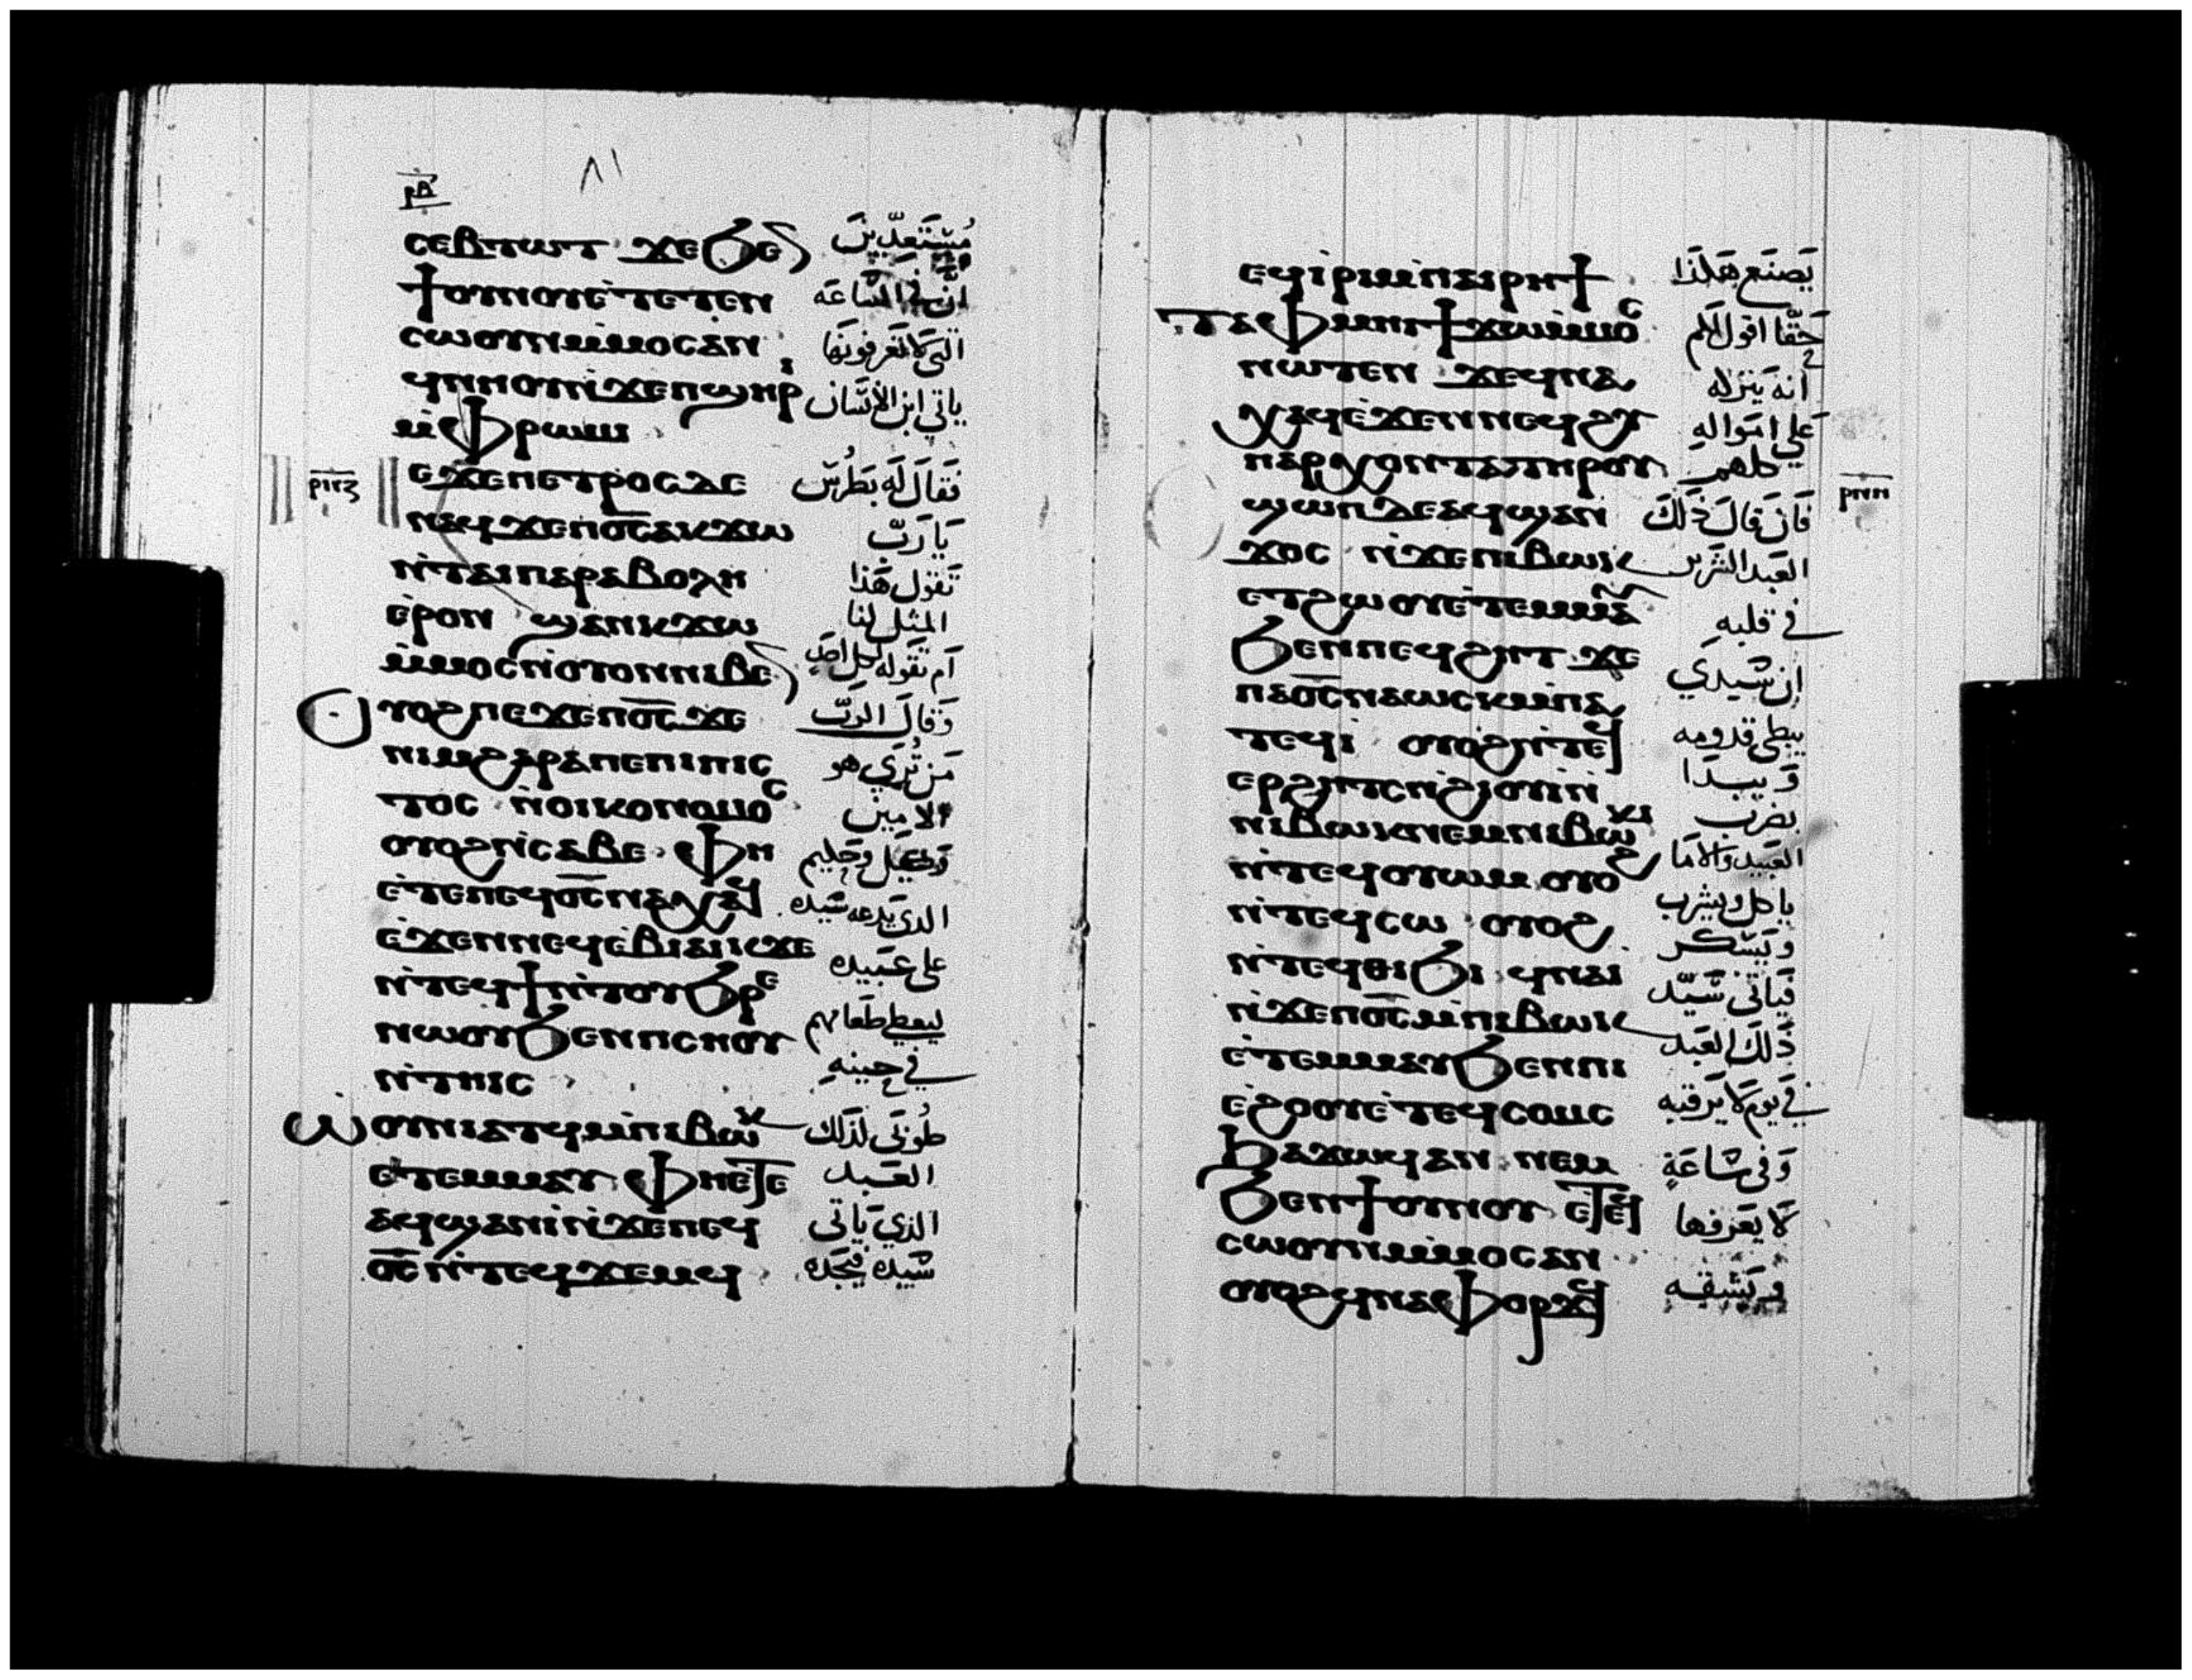 ⲣⲡ
٨١
ⲥⲉⲃⲧⲱⲧ ϫⲉϧⲉⲛ مُسْتَعِدِّينَ
ϯⲟⲩⲛⲟⲩⲉ̀ⲧⲉⲧⲉⲛ انَّ في السَّاعَه
ⲥⲱⲟⲩⲛⲙ̀ⲙⲟⲥⲁⲛ التي لا تَعرفونَها
ϥⲛⲏⲟⲩⲛ̀ϫⲉⲡϣⲏⲣⲓ ياتي ابن الانسَان
ⲙ̀ⲫⲣⲱⲙⲓ
ⲉϫⲉⲡⲉⲧⲣⲟⲥⲇⲉ فَقالَ لَه بَطْرُس
ⲛⲁϥϫⲉⲡⲟ̅ⲥ̅ⲁⲕϫⲱ يَا رَبّ
ⲛ̀ⲧⲁⲓⲡⲁⲣⲁⲃⲟⲗⲏ تَقول هَذا
ⲉ̀ⲣⲟⲛ ϣⲁⲛⲕϫⲱ المثل لنا
ⲙ̀ⲙⲟⲥⲛ̀ⲟⲩⲟⲛⲛⲓⲃⲉⲛ اَم تَقوله لكل احَد
ⲟⲩⲟϩⲡⲉϫⲉⲡⲟ̅ⲥ̅ϫⲉ وَقالَ الرَبّ
ⲛⲓⲙϩⲁⲣⲁⲡⲉⲡⲓⲡⲓⲥ مَن تُرَي هو
ⲧⲟⲥ ⲛ̀ⲟⲓⲕⲟⲛⲟⲙⲟⲥ الامين
ⲟⲩⲟϩⲛ̀ⲥⲁⲃⲉ ⲫⲏ وحَليم
ⲉ̀ⲧⲉⲡⲉϥⲟ̅ⲥ̅ⲛⲁⲭⲁϥ الذي يَدعه سَيده
ⲉ̀ϫⲉⲛⲛⲉϥⲉ̀ⲃⲓⲁⲓⲕϫⲉ على عَبيده
ⲛ̀ⲧⲉϥϯⲛ̀ⲧⲟⲩϧⲣⲉ ليعطي طعامهم
ⲛⲱⲟⲩϧⲉⲛⲡⲥⲏⲟⲩ في حينهِ
ⲛ̀ⲧⲏⲓⲥ
ⲱ̀ⲟⲩⲛⲓⲁⲧϥⲙ̀ⲡⲓⲃⲱⲕ طُوبَي لذلك
ⲉⲧⲉⲙⲙⲁⲩ ⲫⲏⲉⲧⲉ العَبد
ⲁϥϣⲁⲛⲓ̀ⲛ̀ϫⲉⲡⲉϥ الذي يَاتي
ⲟ̅ⲥ̅ⲛ̀ⲧⲉϥϫⲉⲙϥ سَيده فيَجَده
ⲉϥⲓ̀ⲣⲓⲙ̀ⲡⲁⲓⲣⲏϯ يَصنَع هَكذا
ⲧⲁⲫⲙⲏⲓϯϫⲱⲙ̀ⲙⲟⲥ حَقّا اقول لكم
ⲛⲱⲧⲉⲛ ϫⲉϥⲛⲁ أنه يَتركه
ⲭⲁϥⲉ̀ϫⲉⲛⲛⲉϥϩⲩ عَلى امَوالهِ
ⲡⲁⲣⲭⲟⲛⲧⲁⲧⲏⲣⲟⲩ كلهم
ϣⲱⲡⲇⲉⲁϥϣⲁⲛ فَان قالَ ذَلكَ
ϫⲟⲥ ⲛ̀ϫⲉⲡⲓⲃⲱⲕ العَبد الشرير
ⲉⲧϩⲱⲟⲩⲉ̀ⲧⲉⲙⲙⲁⲩ في قلبهِ
ϧⲉⲛⲡⲉϥϩⲏⲧ ϫⲉ إن سَيدي
ⲡⲁⲟ̅ⲥ̅ⲛⲁⲱⲥⲕⲙ̀ⲡⲁ يبطي قدومه
ⲧⲉϥⲓ̀ ⲟⲩⲟϩⲛ̀ⲧⲉϥ وَ يبدَا
ⲉⲣϩⲏⲧⲥⲛ̀ϩⲓⲟⲩⲓ̀ⲛ̀ بضرب
ⲛⲓⲃⲱⲕⲛⲉⲙⲛⲓⲃⲱⲕⲓ العَبيد والامَا
ⲛ̀ⲧⲉϥⲟⲩⲱⲙ ⲟⲩⲟϩ ياكل ويشرب
ⲛ̀ⲧⲉϥⲥⲱ ⲟⲩⲟϩ وَيَسكر
ⲛ̀ⲧⲉϥⲑⲓϧⲓ ϥⲛⲁⲓ̀ فيَاتي سَيّد
ⲛ̀ϫⲉⲡⲟ̅ⲥ̅ⲙ̀ⲡⲓⲃⲱⲕ ذَلكَ العَبد
ⲉ̀ⲧⲉⲙⲙⲁⲩϧⲉⲛⲡⲓ
ⲉϩⲟⲟⲩⲉ̀ⲧⲉϥⲥⲟⲙⲥ في يوم لا يَرقبه
ϧⲁϫⲱϥⲁⲛ ⲛⲉⲙ وَفي سَاعَة
ϧⲉⲛϯⲟⲩⲛⲟⲩ ⲉ̀ⲧⲉϥ لَا يعَرفها
ⲥⲱⲟⲩⲛⲙ̀ⲙⲟⲥⲁⲛ
ⲟⲩⲟϩϥⲛⲁⲫⲟⲣϫϥ وَيَشقه